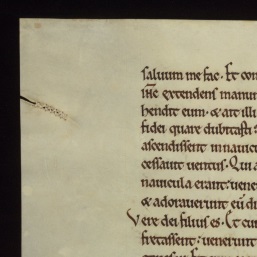 saluum me fac. Et con
ihc extendens manum
hendit eum. & ait illi
fidei quare dubitasti
ascendissent in nauicu
cessauit uentus. Qui a
nauicula erant: uene
& adorauerunt eū di
Vere dei filius es. Et cu
fretassent: uenerunt